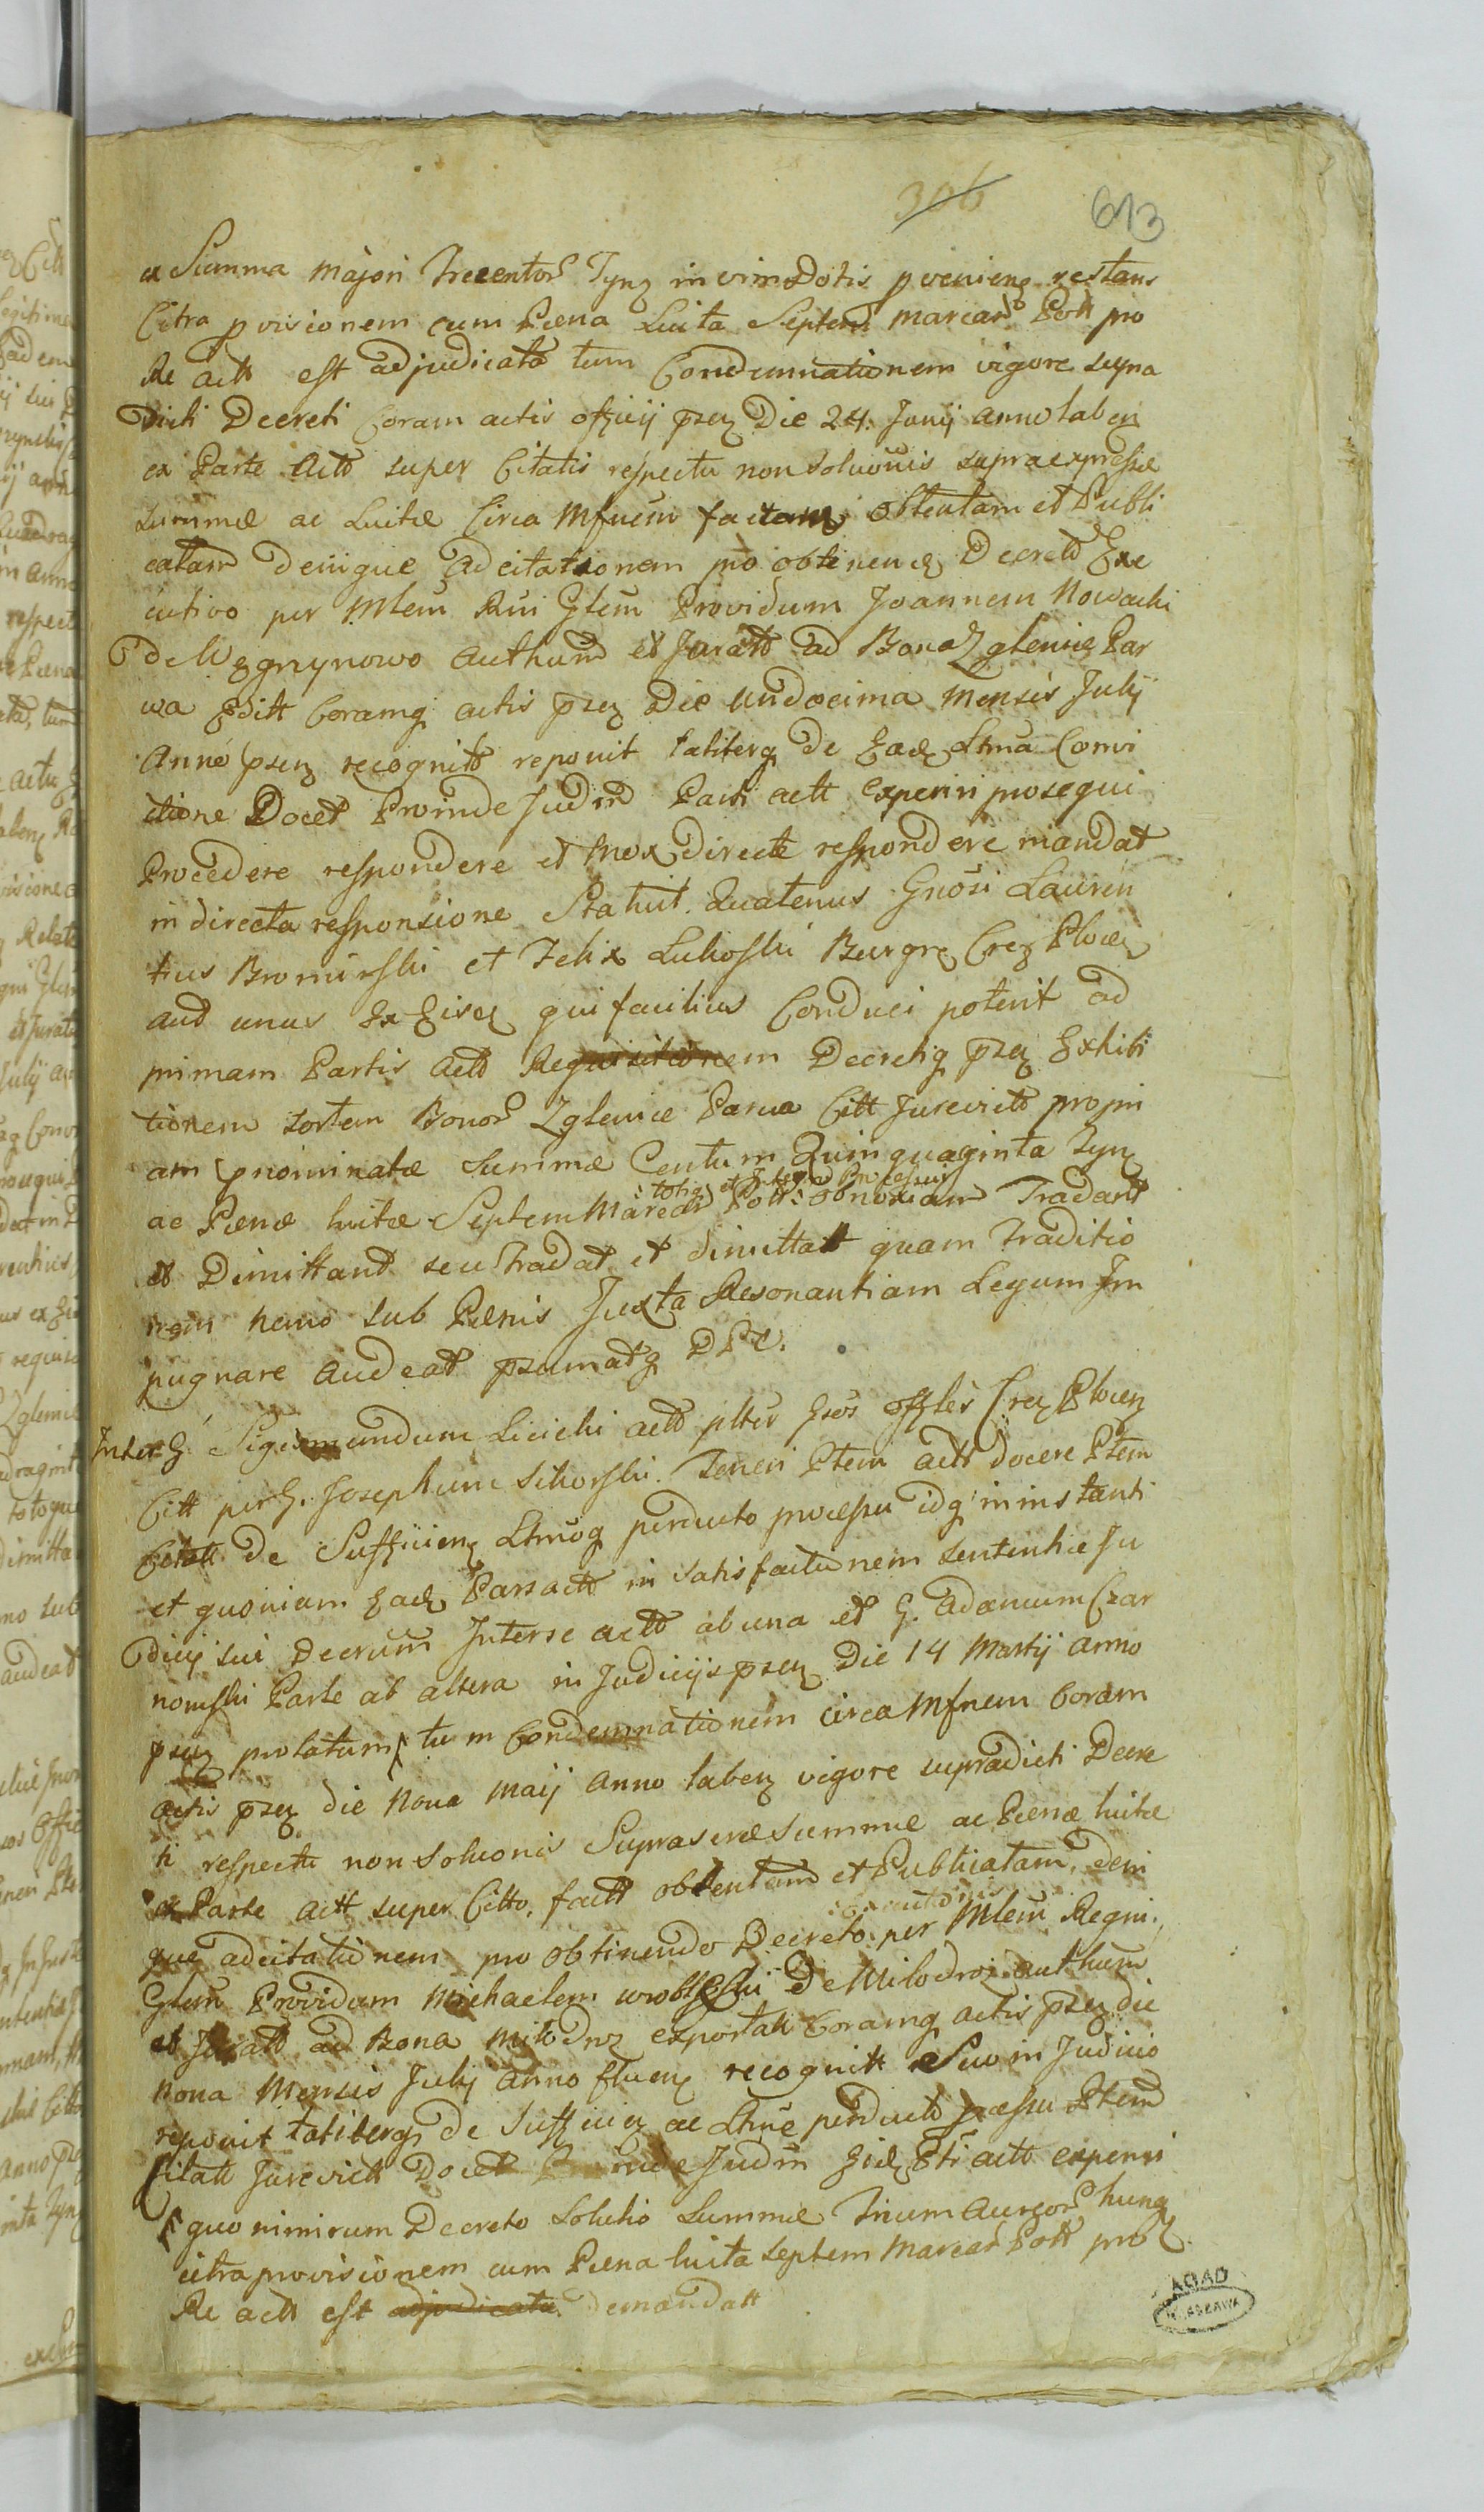 306 613
ex Summa Majori Trecentor Tynz in vim Dotis pvenienz restans
Citra pvisionem cum Pæna Luita Septem Marcar Poll pro
Re actt est adjudicata tum Condemnationem vigore supra
dicti Decreti Coram actis offficij psez Die 24. Junij anno laben
ex Parte Actt super Citatis respectu non Soluōnis supraexpressæ
summæ ac Luitæ Circa Mfnem factam obtentam et Publi
catam deniique adcitationem pro obtinenz Decreto Exe
cutivo per Mlem Rni Glem Providum Joannem Nowacki
de Węgrzynowo Authum et Juratt ad Bona Zglenice Par
wa Editt Coramq actis psez Die undecima Mensis Julij
Anno psen recognitt reponit taliterq de Eadz Ltma Convi
ctione Docet Proinde Judm Parti actt Experiri prosequi
Procedere respondere et mox directe respondere mandat
in directa responsione Statuit. Quatenus Gnosi Lauren
tius Bromirski et Felix Lukoski Burgrz Crez Plocen
aut unus Ex Eisdz qui facilius Conduci poterit ad
primam Partis Actt Requisitionem Decretiq psez Exhibi
tionem sortem Bonor Zglenice Parva Citt Jurevictt propri
am pnominatæ summæ Centum Quinquaginta Tynz
: totiq et Integro Processui
ac Pænæ luitæ Septem Marcar Poll: obnoxiam Tradant
et Dimittant seu Tradat et dimittat quam Traditio
nem nemo sub Pænis Juxta Resonantiam Legum Im
pugnare audeat psumatq DPC.
Inter G. Sigismundum Licicki actt plter Gsos offles Crez Plocen
Citt per G. Josephum Sikorski. Teneri Ptem actt docere Ptem
Citatt de Sufficienz Ltmoq perducto processu idq in instanti
et quoniam Eadz Pars actt in satisfactionem sententiæ Ju
dicij sui Decrum Inter se actt ab una et G. Adamum Czar
nomski Parte ab altera in Judicijs psez Die 14 Martij anno
psez prolatum tum Condemnationem circa Mfnem Coram
actis psez die Nona Maij Anno labenz vigore supradicti Decre
ti respectu non Soluonis Suprascræ summæ ac Pænæ luitæ
ex Parte actt super Citto. factt obtentam et Publicatam, deni
que adcitationem pro obtinendo Decreto per Mlem Regni.
Glem Providum Michaelem wroblewski de Milodroz Authum
et Juratt ad Bona Milodroz exportatt Coramq actis psez die
Nona Mensis Julij anno fluenz recognitt Suo in Judicio
reponit taliterq de Sufficienz ac Ltme perducto pcessu Ptem
Citatt Jurevictt Docet Proinde Judm Eidz Pti actt experiri
quo nimirum Decreto Solutio Summæ Trium aureor hung
citra provisionem cum Pæna luita septem Marcar Poll pro
Re actt est adjudicata. demandatt
AGAD
WARSZAWA